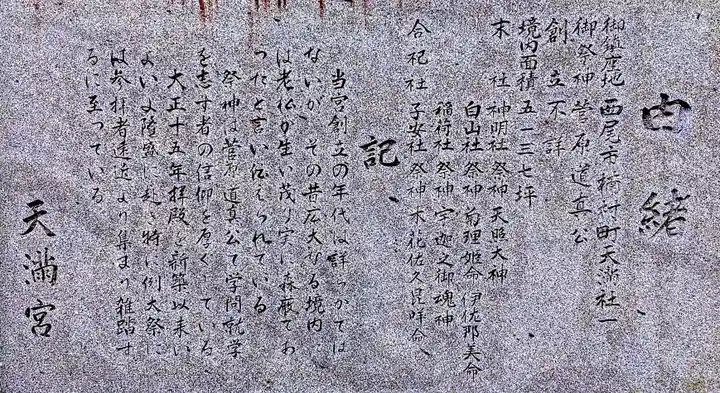 由緒
御鎮座地 西尾市楠村町天満社一
御祭神 菅原道真公
創立 不詳
境内面積 五一三七坪
末社 神明社 祭神 天照大神
白山社 祭神 菊理姫命 伊伎那美命
稲荷社 祭神 宇迦之御魂神
合祀社 子安社 祭神 木花佐久毘咩命
記
当宮創立の年代は詳つかては
ないが、その昔広大なる境内
は老松が生い茂り実に森厳であ
つたと言い伝えられている
祭神は菅原道真公で学問就学
を志す者の信仰を厚くしている
大正十五年拝殿を新築以来い
よいよ隆盛に赴き特に例大祭に
は参拝者遠近より集まり雑踏す
るに至つている
天満宮